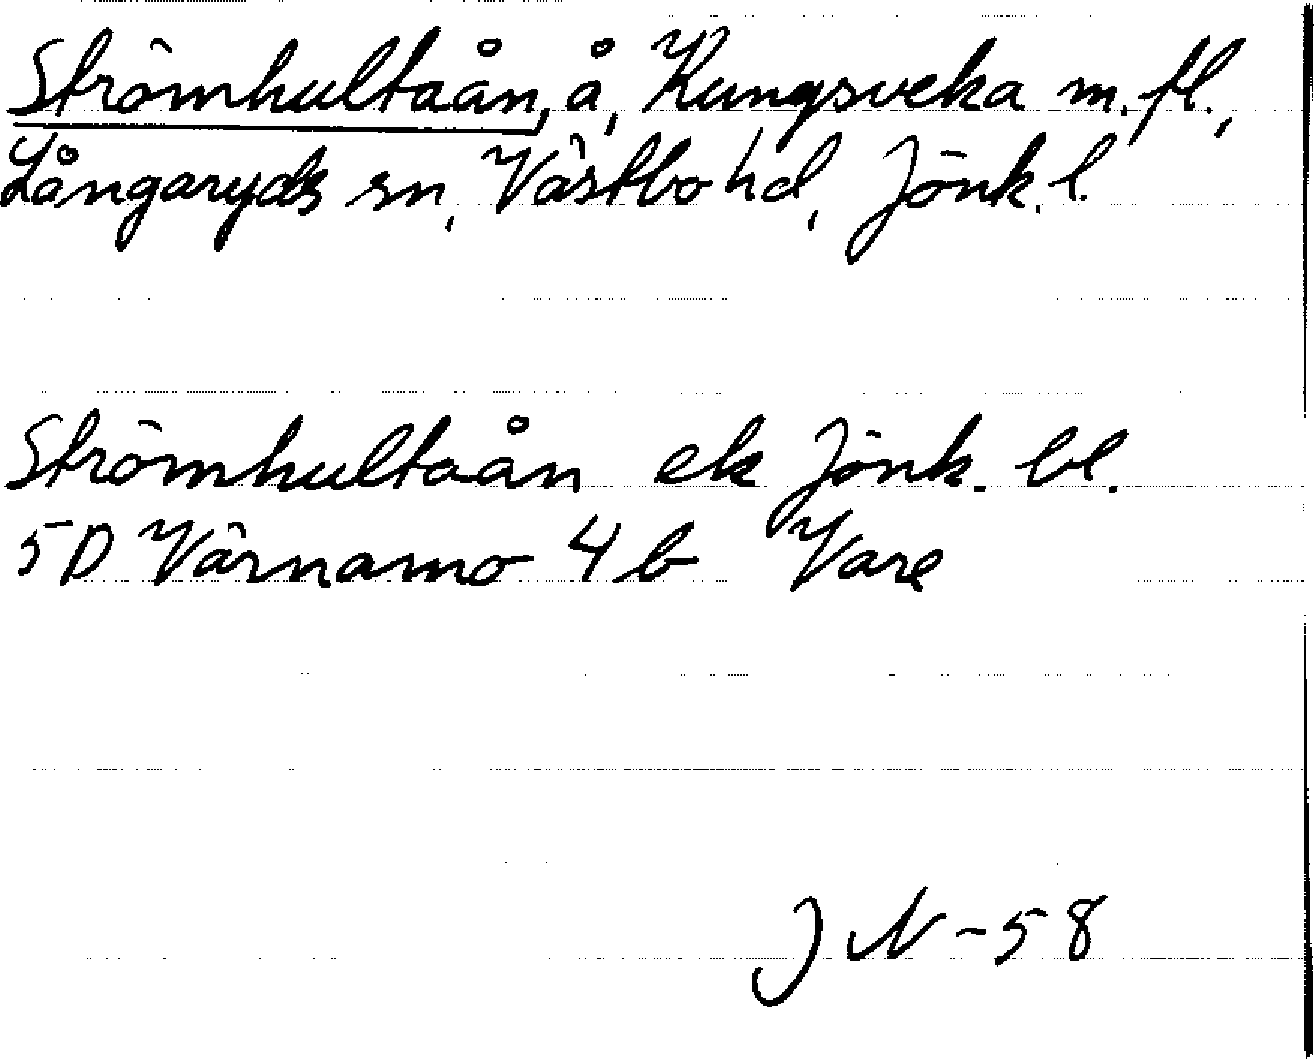 Strömhultaån, å, Kungsveka m. fl.,
Långaryds sn, Västbo hd, Jönk. l.
Strömhultaån ek Jönk. bl.
5D Värnamo 4 b Vare
J N - 58